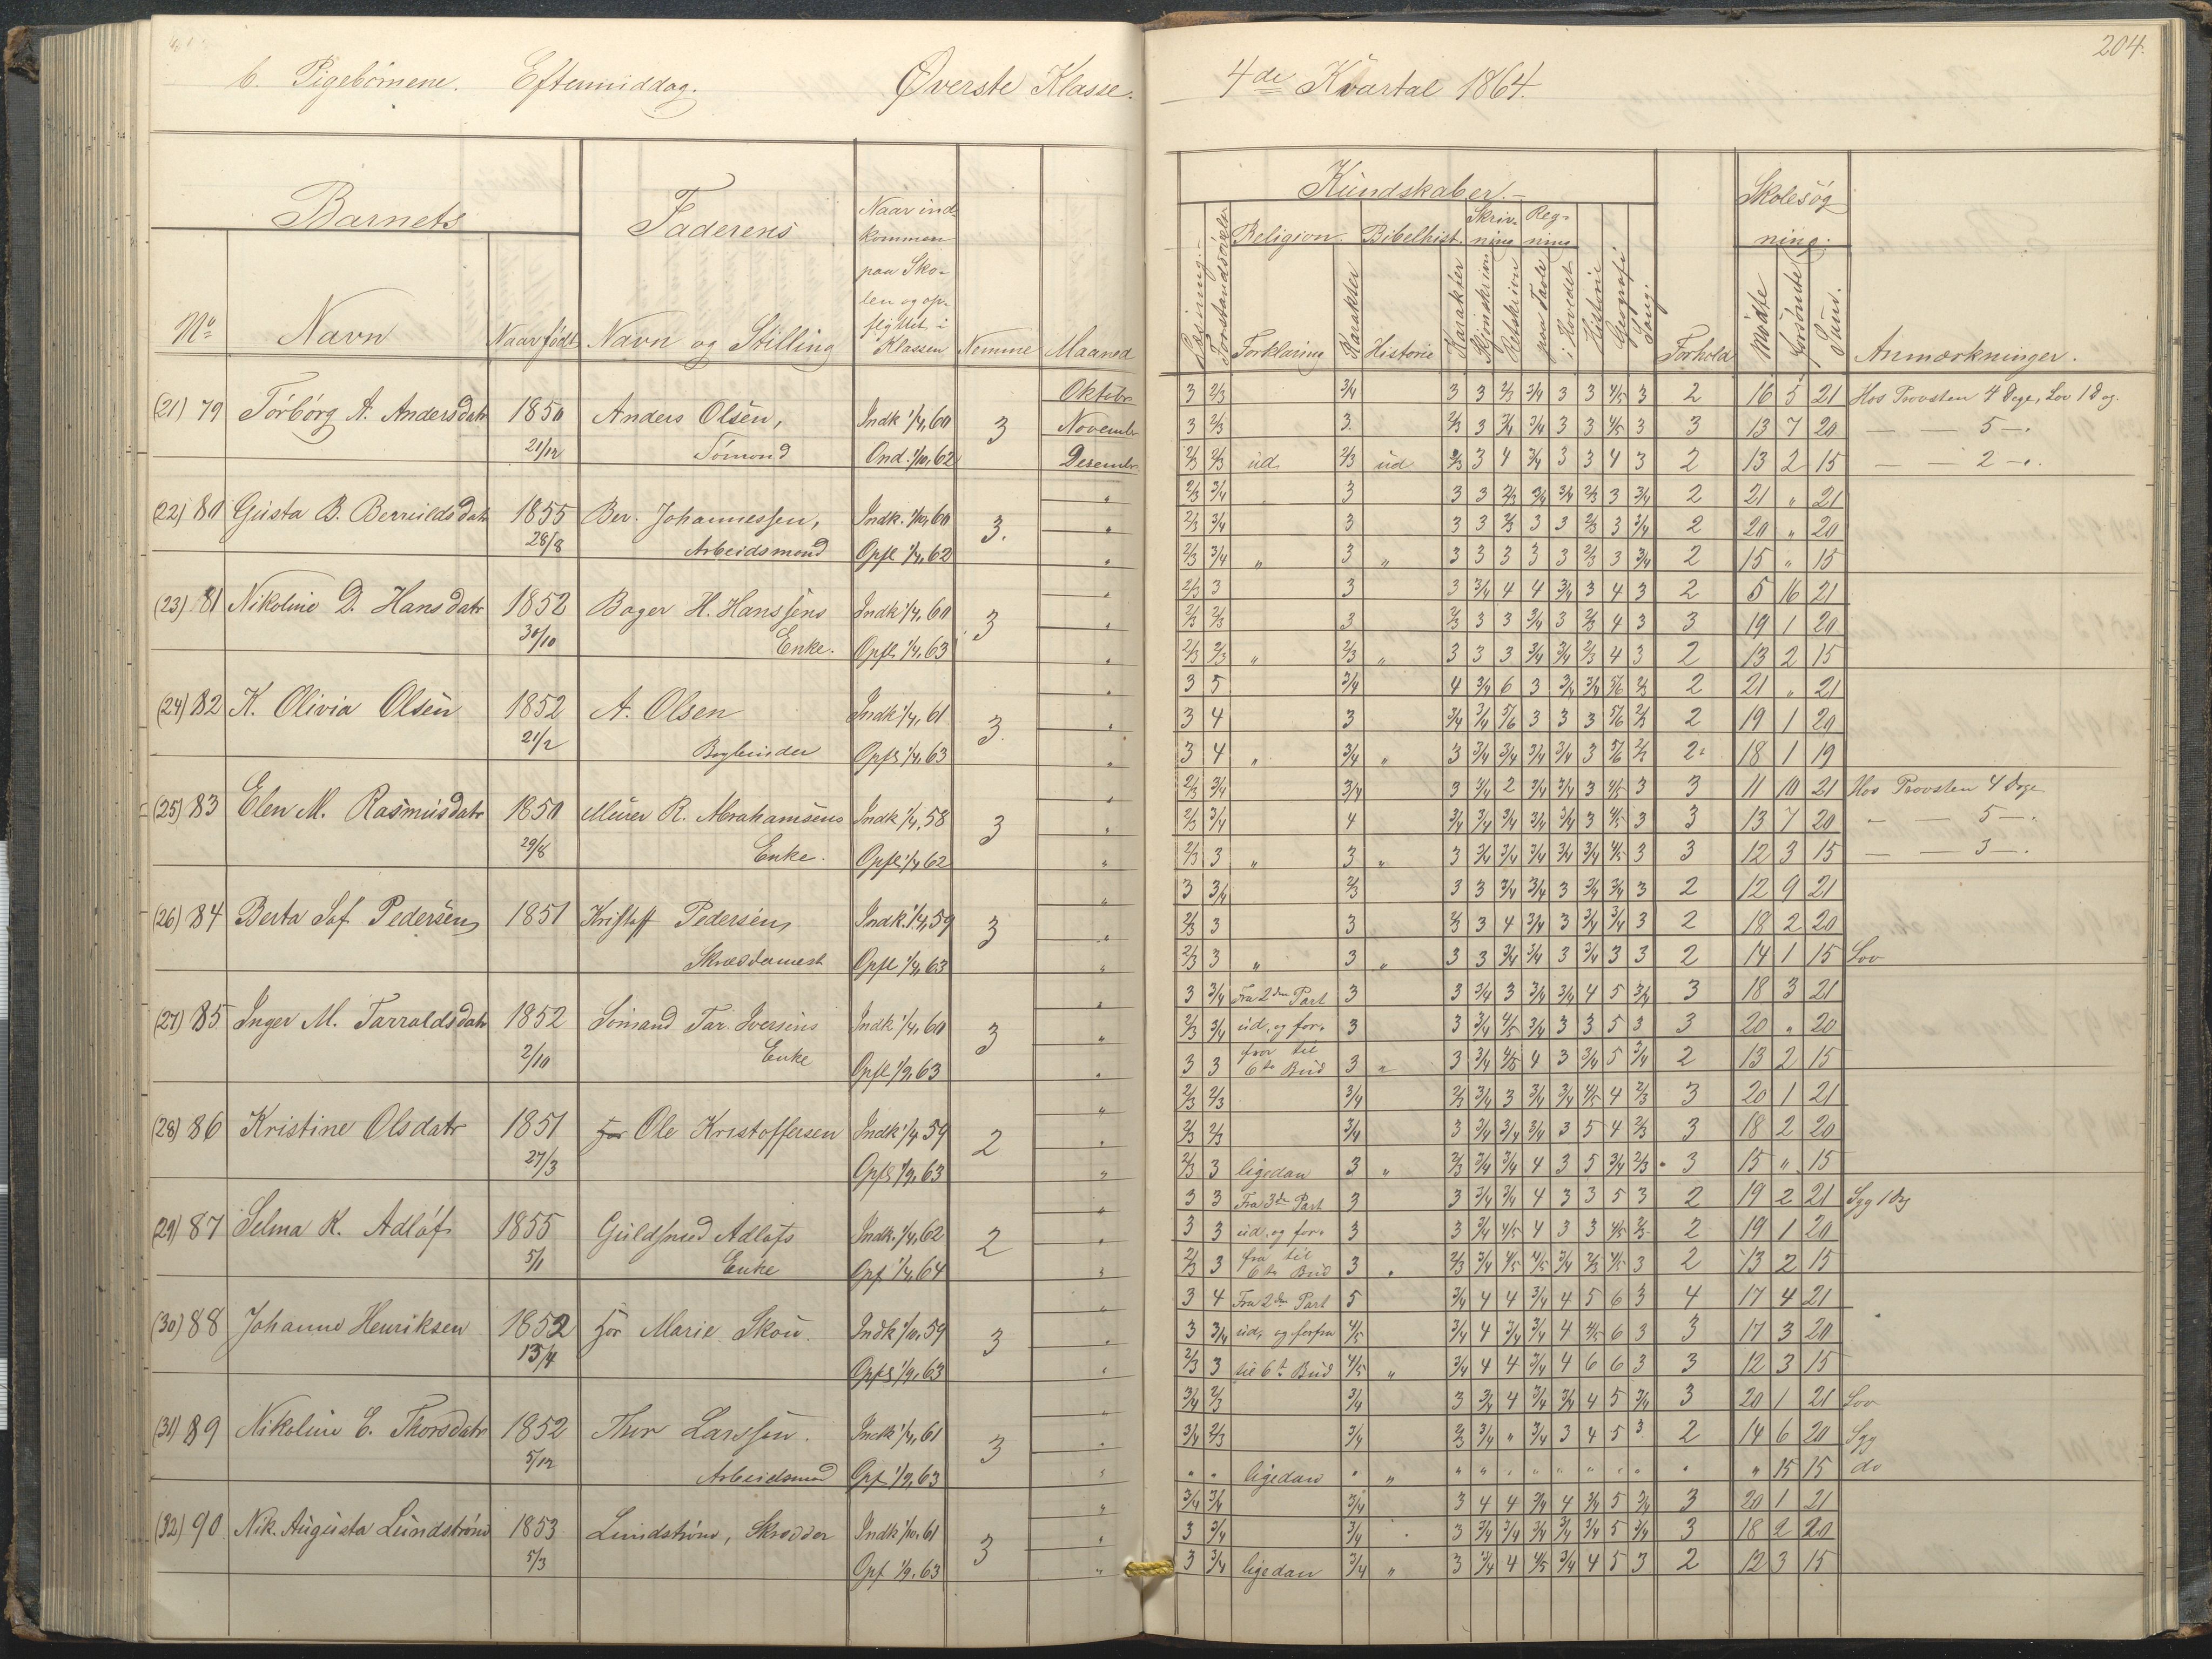 204.
b. Pigebörnene. Eftermiddag. Øverste Klasse. 4de Kvartal 1864.
Barnets Faderens Naar ind- kommen paa Sko- len og op- flyttet i Klassen Nemme Maaned
No Navn Naar født Navn og Stilling
Kundskaber.- Skolesøg- ning.
Læsning. Forstandsøvelse Religion. Bibelhist. Skriv- ning Reg- ning
Forklaring Karakter Historie Karakter Skjønskrivn Retskrivn paa Tavle i Hovedet Historie Geografi Sang. Forhold Mødte forsömte Sum. Anmærkninger.
(21) 79 Törbörg A. Andersdatr 1850 Anders Olsen, Indk 1/4, 60 3 Oktobr 3 2/3 3/4 3 3 2/3 3/4 3 3 4/5 3 2 16 5 21 Hos Provsten 4 Dage, Lov 1 Dag.
21/12 Sömand Novembr 3 2/3 3 2/3 3 3/4 3/4 3 3 4/5 3 3 13 7 20 — — 5 —.
Ond. 1/10, 62 Desembr. 2/3 2/3 ud 2/3 ud 2/3 3 4 3/4 3 3 4 3 2 13 2 15 — — 2 —.
(22) 80 Gusta B. Berruldsdatr 1855 Ber. Johannessen, Indk. 1/10, 60 3. " 2/3 3/4 3 3 3 2/3 3/4 3/4 2/3 3 3/4 2 21 " 21
28/8 Arbeidsmand " 2/3 3/4 3 3 3 2/3 3 3 2/3 3 3/4 2 20 " 20
Opfl 1/4, 62 " 2/3 3/4 " 3 " 3 3 3 3 3 2/3 3 3/4 2 15 " 15
(23) 81 Nikoline D. Hansdatr 1852 Bager H. Hanssens Indk 1/4, 60 3 " 2/3 3 3 3 3/4 4 4 3/4 3 4 3 2 5 16 21
30/10 Enke. " 2/3 2/3 3 2/3 3 3 3/4 3 2/3 4 3 3 19 1 20
Opfl 1/4, 63 " 2/3 2/3 " 2/3 " 3 3 3 3/4 3/4 2/3 4 3 2 13 2 15
(24) 82 K. Olivia Olsen 1852 A. Olsen Indk 1/4, 61 3. " 3 5 3/4 4 3/4 6 3 3/4 3/4 5/6 2/3 2 21 " 21
21/2 Bogbinder " 3 4 3 3/4 3/4 5/6 3 3 3 5/6 2/3 2 19 1 20
Opfl 1/4, 63 " 3 4 " 3/4 " 3 3/4 3/4 3/4 3/4 3 5/6 2/3 2 18 1 19
(25) 83 Elen M. Rasmusdatr 1850 Murer R. Abrahamsens Indk 1/4, 58 3 " 2/3 3/4 3/4 3 3/4 2 3/4 3/4 3 4/5 3 3 11 10 21 Hos Provsten 4 Dage
29/8 Enke. " 2/3 3/4 4 3/4 3/4 3/4 3/4 3/4 3 4/5 3 3 13 7 20 — — 5 —.
Opfl 1/4, 62 " 2/3 3 " 3 " 3 3/4 3/4 3/4 3/4 3/4 4/5 3 3 12 3 15 — — 3 —.
(26) 84 Berta Sof. Pedersen 1851 Kristoff Pedersen, Indk. 1/4, 59 3 " 3 3/4 2/3 3 3 3/4 3/4 3 3/4 3/4 3 2 12 9 21
Skræddermest " 2/3 3 3 2/3 3 4 3/4 3 3/4 3/4 3 2 18 2 20
Opfl 1/4, 63 " 2/3 3 " 3 " 3 3 3/4 3/4 3 3/4 3 3 2 14 1 15 Lov
(27) 85 Inger M. Tarraldsdatr 1852 Sömand Tar. Iversens Indk 1/4, 60 3 " 3 3/4 Fra 2den Part 3 3 3/4 3 3/4 3/4 4 5 3/4 3 18 3 21
2/10 Enke " 2/3 3/4 ud, og for- 3 3 3/4 4/5 3/4 3 3 5 3 3 20 " 20
Opfl 1/9, 63 " 3 3 fra til 6te Bud 3 " 3 3/4 4/5 4 3 3/4 5 3/4 2 13 2 15
(28) 86 Kristine Olsdatr 1851 for Ole Kristoffersen Indk 1/4, 59 2 " 2/3 2/3 3/4 2/3 3/4 3 3/4 3/4 4/5 4 2/3 3 20 1 21
27/3 " 2/3 2/3 3/4 3 3/4 3/4 3/4 3 5 4 2/3 3 18 2 20
Opfl 1/9, 63 " 2/3 3 ligedan 3 " 2/3 3/4 3/4 4 3 5 3/4 2/3 3 15 " 15
(29) 87 Selma K. Adlöf 1855 Guldsmed Adlöfs Indk. 1/4, 62 2 " 3 3 Fra 3de Part 3 3 3/4 3/4 4 3 3 5 3 2 19 2 21 Syg 1 Dg
5/1 Enke " 3 3 ud, og for- 3 3 3/4 4/5 4 3 3 4/5 2/3 2 19 1 20
Opf 1/4, 64 " 2/3 3 fra til 6te Bud 3 " 2/3 3/4 4/5 4/5 3/4 2/3 4/5 3 2 13 2 15
(30) 88 Johanne Henriksen 1852 for Marie Skou. Indk 1/10, 59 3 " 3 4 Fra 2den Part 5 3/4 4 4 3/4 4 5 6 3 4 17 4 21
13/4 " 3 3/4 ud, og forfra 4/5 3/4 4 3/4 3/4 4 4/5 6 3 3 17 3 20
Opfl 1/9, 63 " 2/3 3 til 6t Bud 4/5 " 3/4 4 4 3/4 4 6 6 3 3 12 3 15
(31) 89 Nikoline E. Thorsdatr 1852 Thor Larssen. Indk 1/4, 61 3 " 3/4 2/3 3/4 3 3/4 4 3/4 3/4 4 5 3/4 3 20 1 21 Lov
5/12 Arbeidsmand " 3/4 2/3 3/4 2/3 3/4 " 3/4 3 4 5 3 2 14 6 20 Syg
Opf 1/9, 63 " " " ligedan " " " " " " " " " " " " 15 15 do
(32) 90 Nik. Augusta Lundström 1853 Lundström, Skrædder Indk 1/10, 61 3 " 3/4 3/4 3/4 3 4 4 3/4 4 3/4 5 3/4 3 20 1 21
5/3 " 3 3/4 3/4 3 3/4 3/4 3/4 3/4 3/4 5 3/4 3 18 2 20
Opf 1/9, 63 " 3 3/4 ligedan 3/4 " 3 3/4 4 4/5 3/4 4 5 3 2 12 3 15